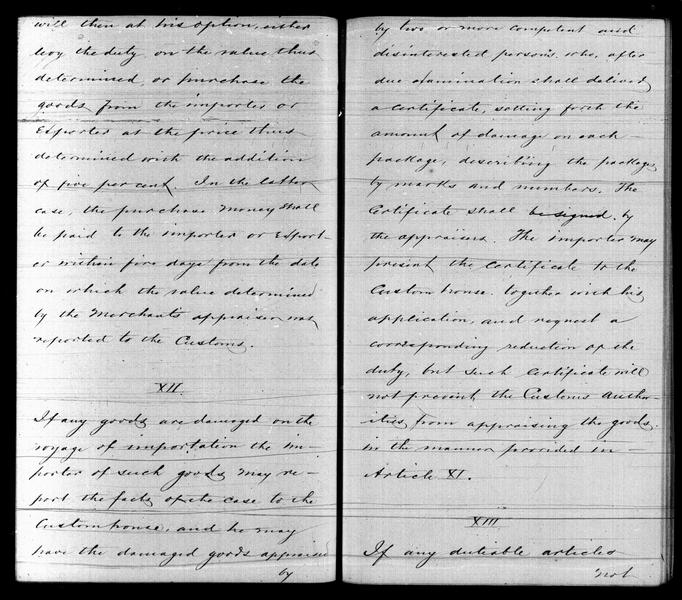 will then at his option, either
levy the duty on the value thus
determined, or purchase the
goods from the importer or
Exporter at the price thus
determined with the addition
of five per cent. In the latter
case, the purchase money shall
be paid to the importer or Export-
er within five days from the date
on which the value determined
by the Merchants appraiser was
reported to the Customs.
XII.
If any goods are damaged on the
voyage of importation the im-
porter of such goods may re-
port the facts of the case to the
Custom house, and he may
have the damaged goods appraised
by
by two or more competent and
disinterested persons, who, after
due examination shall deliver
a certificate, setting forth the
amount of damage on each
package, describing the packages
by marks and numbers. The
Certificate shall be signed by
the appraisers. The importer may
present the certificate to the
Custom house together with his
application, and request a
corresponding reduction of the
duty, but such certificate will
not prevent the Customs author-
ities from appraising the goods
in the manner provided in
Article XI.
XIII
If any dutiable articles
not